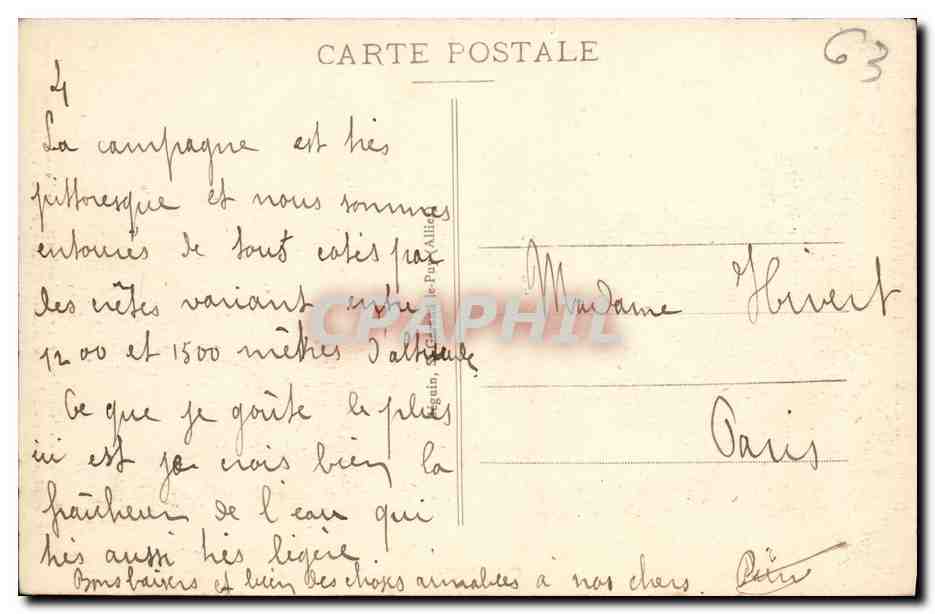 CARTE POSTALE
63
4
La campagne est très
pittoresque et nous sommes
entourés de tout cotés par
des crêtes variant entre
1200 et 1500 mètres d'altitude
Ce que je goûte le plus
ici est je crois bien la
fraîcheur de l'eau qui
très aussi très légère.
Bons baisers et bien des choses aimables à nos chers.
Madame Hivert
Paris
CPAPHIL